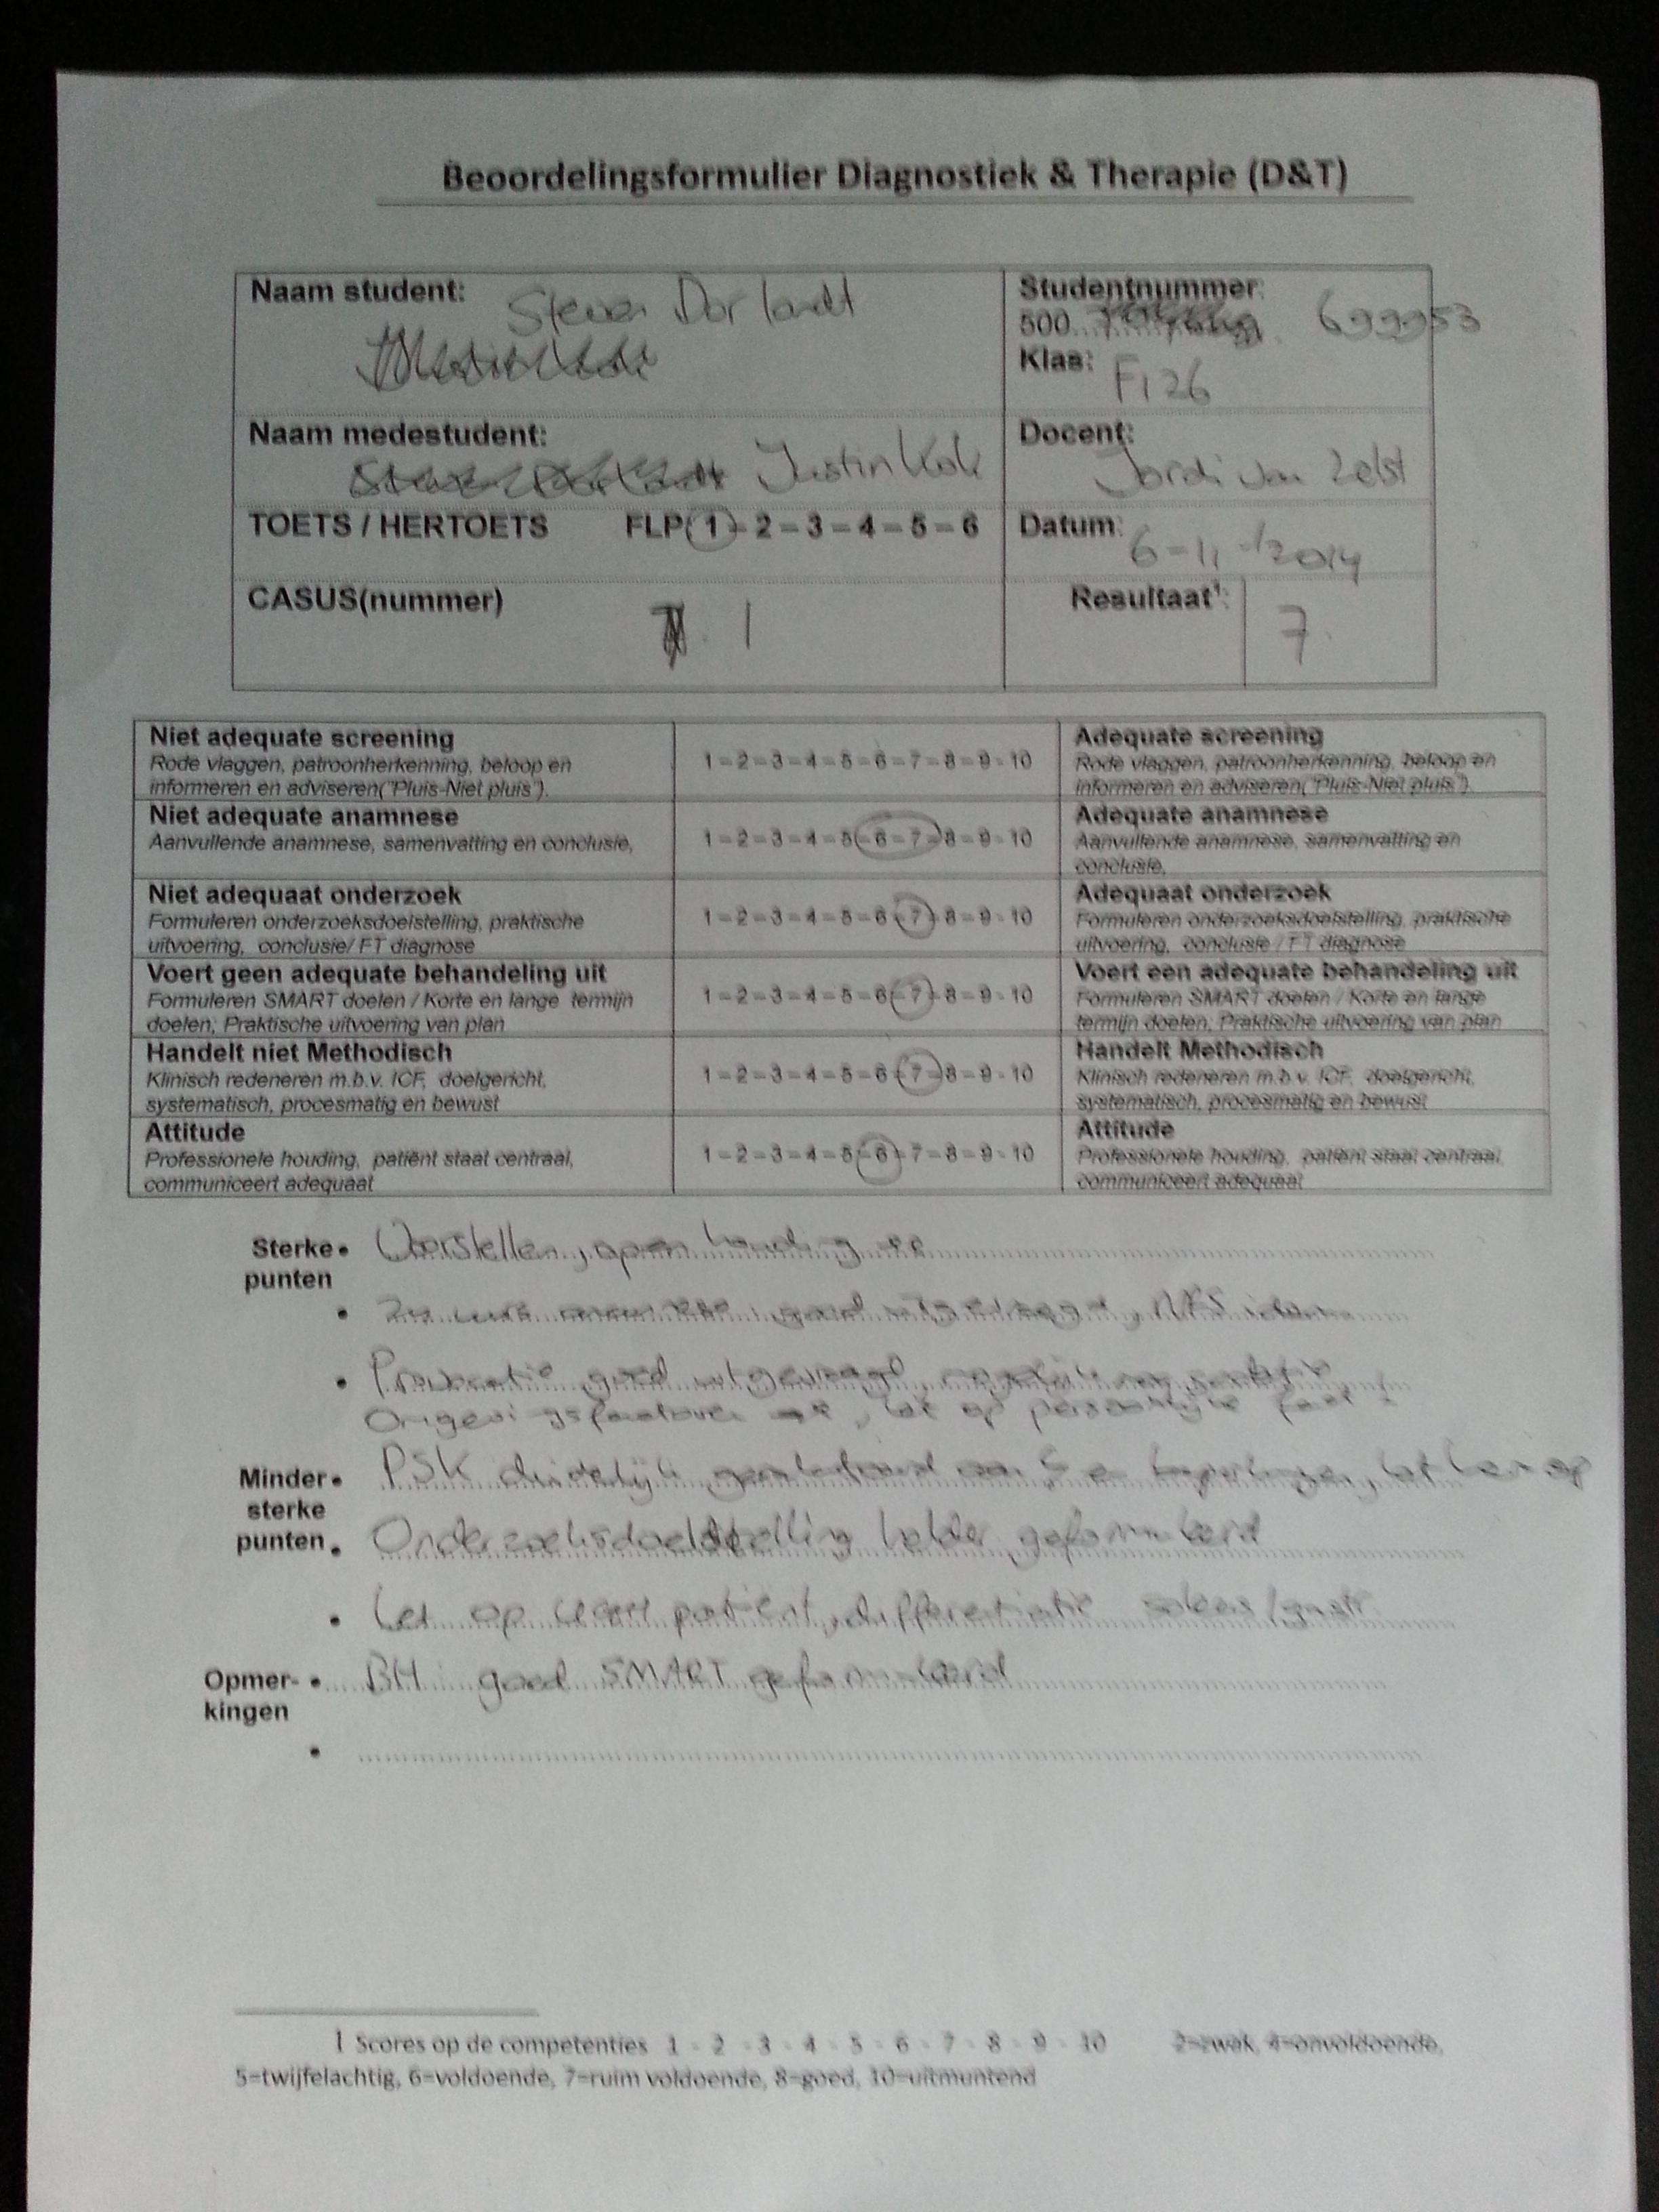 Beoordelingsformulier Diagnostiek & Therapie (D&T)
Naam student: Steven Dorlandt
Studentnummer:
500 699953
Klas: F126
Naam medestudent:
Justin Kok
Docent:
Jordi van Zelst
TOETS / HERTOETS FLP 1 - 2 - 3 - 4 - 5 - 6
Datum: 6-11-2014
CASUS(nummer) 1
Resultaat¹: 7
Niet adequate screening
Rode vlaggen, patroonherkenning, beloop en
informeren en adviseren("Pluis-Niet pluis").
1 - 2 - 3 - 4 - 5 - 6 - 7 - 8 - 9 - 10
Adequate screening
Rode vlaggen, patroonherkenning, beloop en
informeren en adviseren("Pluis-Niet pluis").
Niet adequate anamnese
Aanvullende anamnese, samenvatting en conclusie,
1 - 2 - 3 - 4 - 5 - 6 - 7 - 8 - 9 - 10
Adequate anamnese
Aanvullende anamnese, samenvatting en
conclusie,
Niet adequaat onderzoek
Formuleren onderzoeksdoelstelling, praktische
uitvoering, conclusie/ FT diagnose
1 - 2 - 3 - 4 - 5 - 6 - 7 - 8 - 9 - 10
Adequaat onderzoek
Formuleren onderzoeksdoelstelling, praktische
uitvoering, conclusie / FT diagnose
Voert geen adequate behandeling uit
Formuleren SMART doelen / Korte en lange termijn
doelen; Praktische uitvoering van plan
1 - 2 - 3 - 4 - 5 - 6 - 7 - 8 - 9 - 10
Voert een adequate behandeling uit
Formuleren SMART doelen / Korte en lange
termijn doelen; Praktische uitvoering van plan
Handelt niet Methodisch
Klinisch redeneren m.b.v. ICF, doelgericht,
systematisch, procesmatig en bewust
1 - 2 - 3 - 4 - 5 - 6 - 7 - 8 - 9 - 10
Handelt Methodisch
Klinisch redeneren m.b.v. ICF, doelgericht,
systematisch, procesmatig en bewust
Attitude
Professionele houding, patiënt staat centraal,
communiceert adequaat
1 - 2 - 3 - 4 - 5 - 6 - 7 - 8 - 9 - 10
Attitude
Professionele houding, patiënt staat centraal,
communiceert adequaat
Sterke punten
Voorstellen, open houding
goed uitgevraagd, NPS idem
Provocatie goed uitgevraagd,
Omgevingsfactoren, let op persoonlijke fact!
Minder sterke punten
PSK duidelijk
Onderzoeksdoelstelling helder geformuleerd
Let op patient, differentiatie soleus/gastr.
Opmerkingen
BH: goed SMART geformuleerd
1 Scores op de competenties 1 - 2 - 3 - 4 - 5 - 6 - 7 - 8 - 9 - 10 2=zwak, 4=onvoldoende,
5=twijfelachtig, 6=voldoende, 7=ruim voldoende, 8=goed, 10=uitmuntend